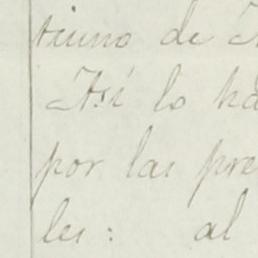 tiuno de
Así lo ha
por las pre
les: al